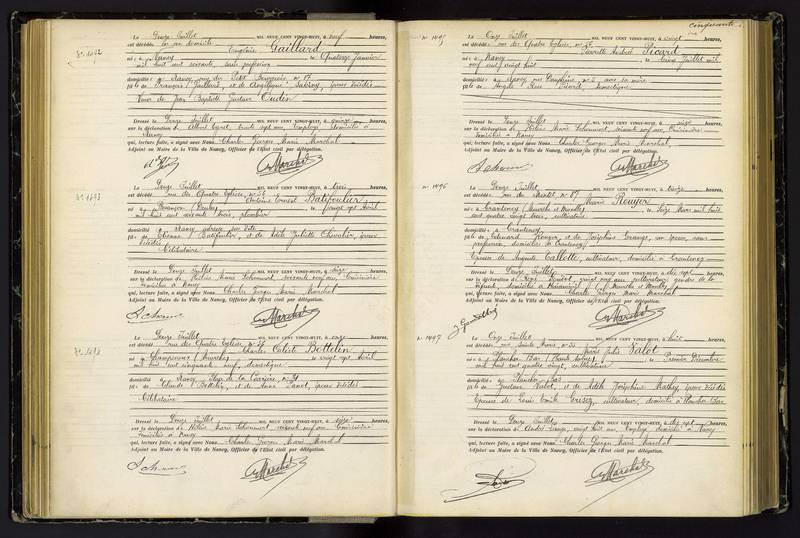 N° 1492
Le Douze Juillet MIL NEUF CENT VINGT-HUIT, à neuf heures,
est décédée en son domicile Gaillard
née à Nancy le Quatorze Janvier
mil huit cent soixante, sans profession
domiciliée à Nancy rue du Petit Bourgeois n° 17
fille de François Gaillard, et de Angélique époux décédés
Veuve de Jean Baptiste Gustave Oudin
Dressé le Douze Juillet MIL NEUF CENT VINGT-HUIT, à quinze heures,
sur la déclaration de Albert trente sept ans, employé domicilié à
Nancy
qui, lecture faite, a signé avec Nous Charles Georges Marie Marchal
Adjoint au Maire de la Ville de Nancy, Officier de l'État civil par délégation.
Marchal
N° 1493
Le Douze Juillet MIL NEUF CENT VINGT-HUIT, à trois heures,
est décédé rue des Quatre Eglises, n° 36 Antoine Ernest Batifoulier
né à Besançon (Doubs) le vingt Avril
mil huit cent soixante trois, plombier
domicilié à Nancy
fils de Etienne Batifoulier, et de Adèle Juliette Chevalier, époux
décédés
Célibataire
Dressé le Douze Juillet MIL NEUF CENT VINGT-HUIT, à seize heures,
sur la déclaration de Hélène Marie soixante neuf ans,
domiciliée à Nancy
qui, lecture faite, a signé avec Nous Charles Georges Marie Marchal
Adjoint au Maire de la Ville de Nancy, Officier de l'État civil par délégation.
Marchal
Le Douze Juillet MIL NEUF CENT VINGT-HUIT, à onze heures,
est décédé rue des Quatre Eglises, n° 36 Charles Calixte Bottelin
né à Champenoux (Meurthe) le vingt Avril
mil huit cent cinquante neuf, domestique
domicilié à Nancy, Place de la Carrière, n° 21
fils de Claude Bottelin, et de Anne époux décédés
Célibataire
Dressé le Douze Juillet MIL NEUF CENT VINGT-HUIT, à seize heures,
sur la déclaration de Hélène Marie soixante neuf ans,
domiciliée à Nancy
qui, lecture faite, a signé avec Nous Charles Georges Marie Marchal
Adjoint au Maire de la Ville de Nancy, Officier de l'État civil par délégation.
Marchal
cinquante
N° 1495
Le Onze Juillet MIL NEUF CENT VINGT-HUIT, à vingt heures,
est décédé rue des Quatre Eglises, n° 36 Picard
né à Nancy le Juillet mil
neuf cent vingt huit
domicilié à Nancy, rue Dauphine, n° 2 avec sa mère
fils de Angèle Picard, domestique
Dressé le Douze Juillet MIL NEUF CENT VINGT-HUIT, à seize heures,
sur la déclaration de Hélène Marie soixante neuf ans,
domiciliée à Nancy
qui, lecture faite, a signé avec Nous Charles Georges Marie Marchal,
Adjoint au Maire de la Ville de Nancy, Officier de l'État civil par délégation.
Marchal
N° 1496
Le Douze Juillet MIL NEUF CENT VINGT-HUIT, à heures,
est décédée rue n° 87 Marie Rouyer
née à Crantenoy (Meurthe et Moselle) le Seize Mars mil huit
cent quatre vingt trois, cultivatrice
domiciliée à Crantenoy
fille de Edouard Rouyer, et de Joséphine époux, sans
profession, domiciliés à Crantenoy
Epouse de Auguste Gallotte, cultivateur, domicilié à Crantenoy
Dressé le Douze Juillet MIL NEUF CENT VINGT-HUIT, à dix sept heures,
sur la déclaration de René vingt ans, cultivateur, gendre de la
défunte, domicilié à (Meurthe et Moselle)
qui, lecture faite, a signé avec Nous Charles Georges Marie Marchal
Adjoint au Maire de la Ville de Nancy, Officier de l'État civil par délégation.
Marchal
N° 1497
Le Onze Juillet MIL NEUF CENT VINGT-HUIT, à huit heures,
est décédée rue Sainte Marie, n° 35 Marie Julie Valot
née à Plancher Bas (Haute Saône) le Premier Décembre
mil huit cent quatre vingt, cultivatrice
domiciliée à Plancher Bas
fille de Gustave Valot, et de Adèle Joséphine Mathey, époux décédés
Epouse de Louis Emile cultivateur, domicilié à Plancher Bas
Dressé le Douze Juillet MIL NEUF CENT VINGT-HUIT, à dix sept heures,
sur la déclaration de André vingt huit ans, employé, domicilié à Nancy
qui, lecture faite, a signé avec Nous Charles Georges Marie Marchal
Adjoint au Maire de la Ville de Nancy, Officier de l'État civil par délégation.
Marchal